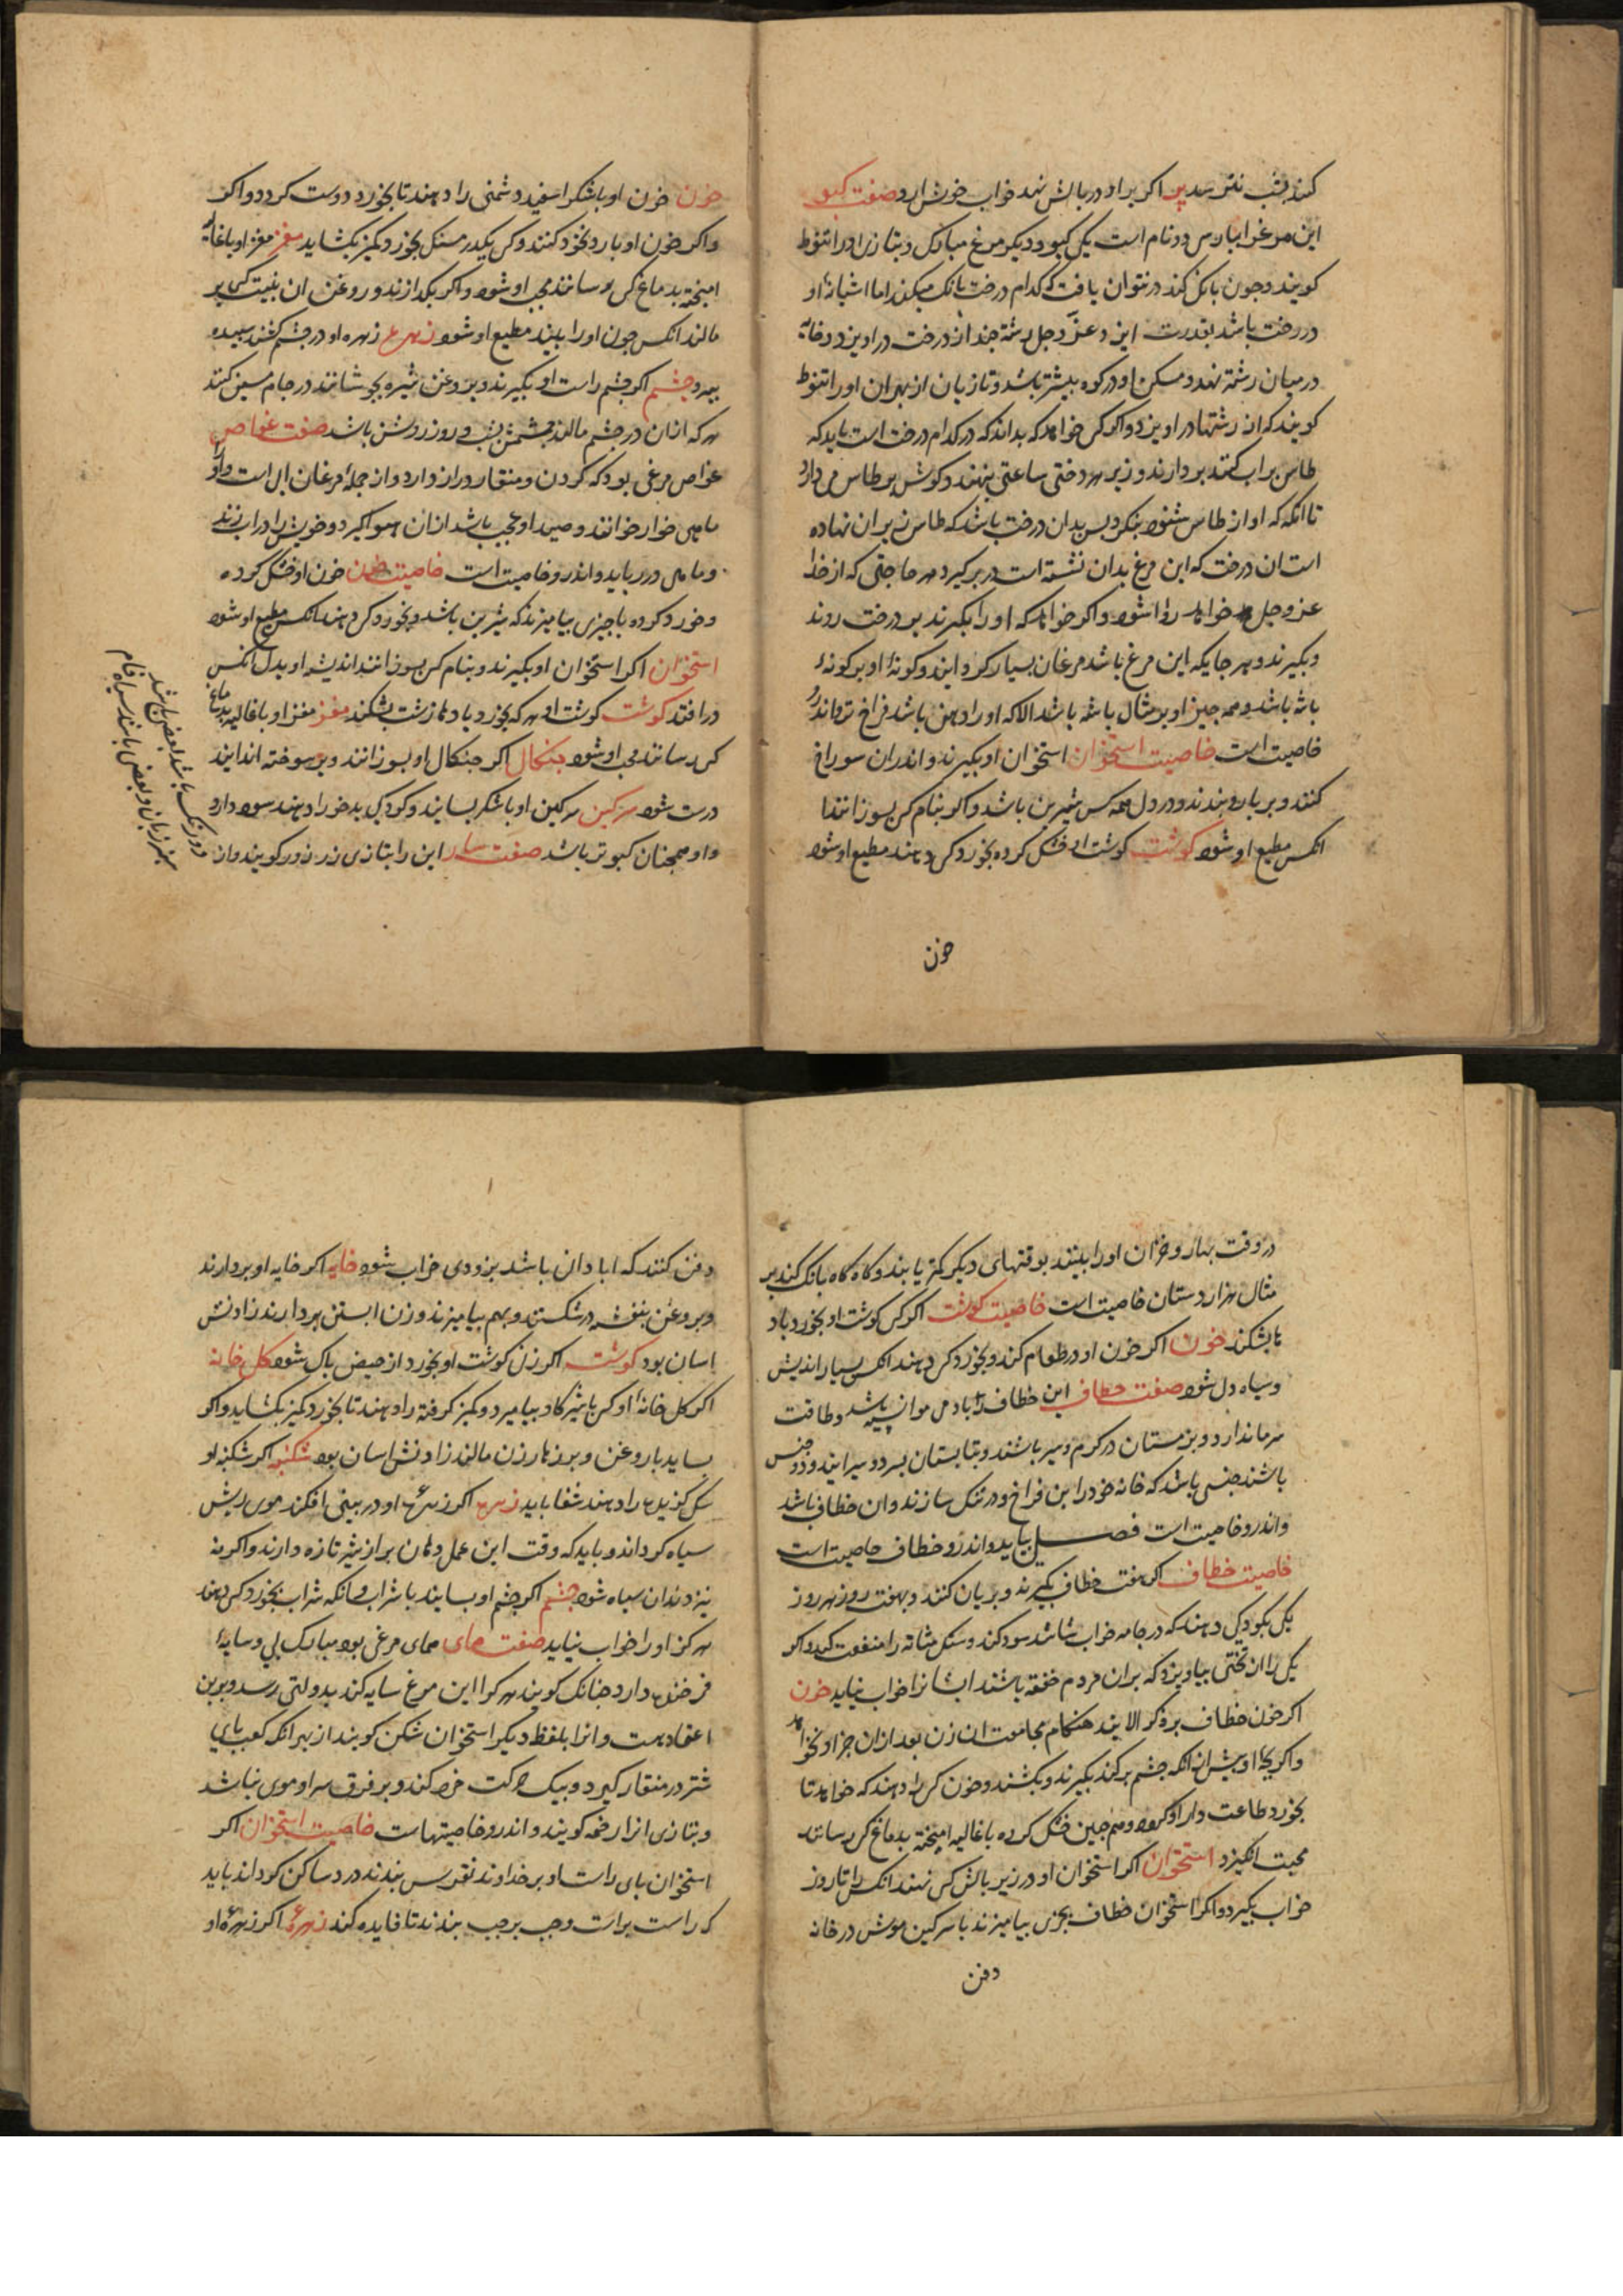 کنند بشب نترسد پر اکر پر او در بالش نهد خواب خوش ارد صفت کبو
این مرغرا بپارس دو نام است یکی کبو و دیکر مرغ مبارک و بتازی او را تنوط
کویند و جون بانک کند در نتوان یافت که کدام درخت بانک میکند اما اشیانهٔ او
در درخت باشد بقدرت ایزد عز و جل رشتهٔ جند از درخت در اویزد و خایه
در میان رشتهٔ نهد و مسکن او در کوه بیشتر باشد و تازیان از بهر ان او را تنوط
کویند که از رشتها در اویزد و اکر کس خواهد که بداند که در کدام درخت است باید که
طاس بر اب کنند بردارند و زیر هر درختی ساعتی بنهند و کوش بر طاس می دارد
تا انکه که اواز طاس شنود بنکرد بس بدان درخت باشد که طاس زیر ان نهاده
است ان درخت که این مرغ بدان نشسته است در بر کیرد هر حاجتی که از خدا
عز و جل خواهد روا شود و اکر خواهد که او را بکیرند بر درخت روند
و بکیرند و هر جایکه این مرغ باشد مرغان بسیار کرد ایند و کونهٔ او بر کونهٔ
باشه باشد و همه جیز او بر مثال باشه باشد الا که او را دهن باشد فراخ تر و اندرو
خاصیت است خاصیت استخوان استخوان او بکیرند و اندران سوراخ
کنند و بر بازو بندند و در دل همه کس شیرین باشد و اکر بنام کس بسوزانند
انکس مطیع او شود کوشت کوشت او خشک کرده بخورد کس دهند مطیع او شود
خون
خون خون او باشکر اسفید دشمنی را دهند تا بخورد دوست کردد و اکر
و اکر خون او با رد بخورد کنند و کس یکدرمسنک بخورد کمیز بکشاید مغز مغز او باغالیه
امیخته بدماغ کس رسانند محب او شود و اکر بکدازند و روغن ان بنیت کس بر
مالند انکس جون او را بیند مطیع او شود زهره زهره او در جشم کشند سبیده
ببرد جشم اکر جشم راست او بکیرند و بروغن شیره بجوشانند در جام مسین کنند
هر که از ان در جشم مالد جشمش بشب و روز روشن باشد صفت غواص
غواص مرغی بود که کردن و منقار دراز دارد و از جملهٔ مرغان ابی است و او را
ماهی خوار خوانند و صید او عجب باشد از ان هوا کیرد و خویش را در اب زند
و ماهی در رباید و اندرو خاصیت است خاصیت خون خون او خشک کرده
و خورد کرده با جیزی بیامیزند که شیرین باشد و بخورد کس دهند انکس مطیع او شود
استخوان اکر استخوان او بکیرند و بنام کس بسوزانند اندیشه او بدل انکس
در افتد کوشت کوشت او هر که بخورد بادهاء زشت بشکند مغز مغز او باغالیه بدماغ
کس رسانند محب او شود جنکال اکر جنکال او بسوزانند و بر سوخته اندایند
درست شود سرکین سرکین او باشکر بسایند و کودک بدخو را دهند سود دارد
و او همجنان کبوتر باشد صفت سار این را بتازی زرزور کویند و ان
دو رنک باشد بعضی باشد
سبز زبان و بعضی باشد سیاه فام
در وقت بهار و خزان او را بینند بوقتهای دیکر کمتر یابند و کاه کاه بانک کند بر
مثال هزاردستان خاصیت است خاصیت کوشت اکر کس کوشت او بخورد باد
ها بشکند خون اکر خون او در طعام کند و بخورد کس دهند انکس بسیار اندیش
و سیاه دل شود صفت خطاف این خطاف را با دمی موانسه باشد و طاقت
سرما ندارد و بزمستان در کرم سیر باشند و بتابستان بسردسیر ایند و دو جنس
باشند جنسی باشد که خانه خود را بن فراخ و در تنک سازند و ان خطاف باشد
و اندرو خاصیت است فصــل بیاید و اندرو خطاف خاصیت است
خاصیت خطاف اکر هفت خطاف بکیرند و بریان کنند و بهفت روز هر روز
یکی بکودکی دهند که در جامه خواب شاشد سود کند و سنک مثانه را منفعت کند و اکر
یکی را از تختی بیاویزد که بر ان مردم خفته باشند ایشانرا خواب نیاید خون
اکر خون خطاف بر ذکر الایند هنکام مجامعت ان زن بعد از ان جز او نخواهد
و اکر بجهٔ او بیش از انکه جشم بر کند بکیرند و بکشند و خون کس را دهند که خواهد تا
بخورد طاعت دار او کردد و هم جنین خشک کرده باغالیه امیخته بدماغ کس رسانند
محبت انکیزد استخوان اکر استخوان او در زیر بالش کس نهند انکس را تا روز
خواب بکیرد و اکر استخوان خطاف بجزی بیامیزند با سرکین موش در خانه
دفن
دفن کنند که ابادان باشد بزودی خراب شود خایه اکر خایه او بردارند
و بروغن بنفشه در شکنند و بهم بیامیزند و زن ابستن بردارند زادنش
اسان بود کوشت اکر زن کوشت او بخورد از حیض باک شود کل خانه
اکر کل خانهٔ او کس باشیر کاو بیامیزد و کمیز کرفته را دهند تا بخورد کمیز بکشاید و اکر
بساید با روغن و بر زهار زن مالند زادنش اسان بود شکنبه اکر شکنبه او
سک کزیده را دهند شفا یابد زهره اکر زهرهٔ او در بینی افکند موی ریش
سیاه کرداند و باید که وقت این عمل دهان بر از شیر تازه دارند و اکر نه
نیز دندان سیاه شود جشم اکر جشم او بسایند با شراب و انکه شراب بخورد کس دهند
هرکز او را خواب نیاید صفت همای همای مرغی بود مبارک بی و سایهٔ
فرخنده دارد جنانک کویند هر کرا این مرغ سایه کند بدولتی رسد و برین
اعتقاد هست و انرا بلفظ دیکر استخوان شکن کویند از بهر انکه کعب بای
شتر در منقار کیرد و بیک حرکت خرد کند و بر فرق سر او موی نباشد
و بتازی انرا رخمه کویند و اندرو خاصیتهاست خاصیت استخوان اکر
استخوان بای راست او بر خداوند نقرس بندند درد ساکن کرداند باید
که راست براست و جب بر جب بندند تا فایده کند زهرهٔ اکر زهرهٔ او